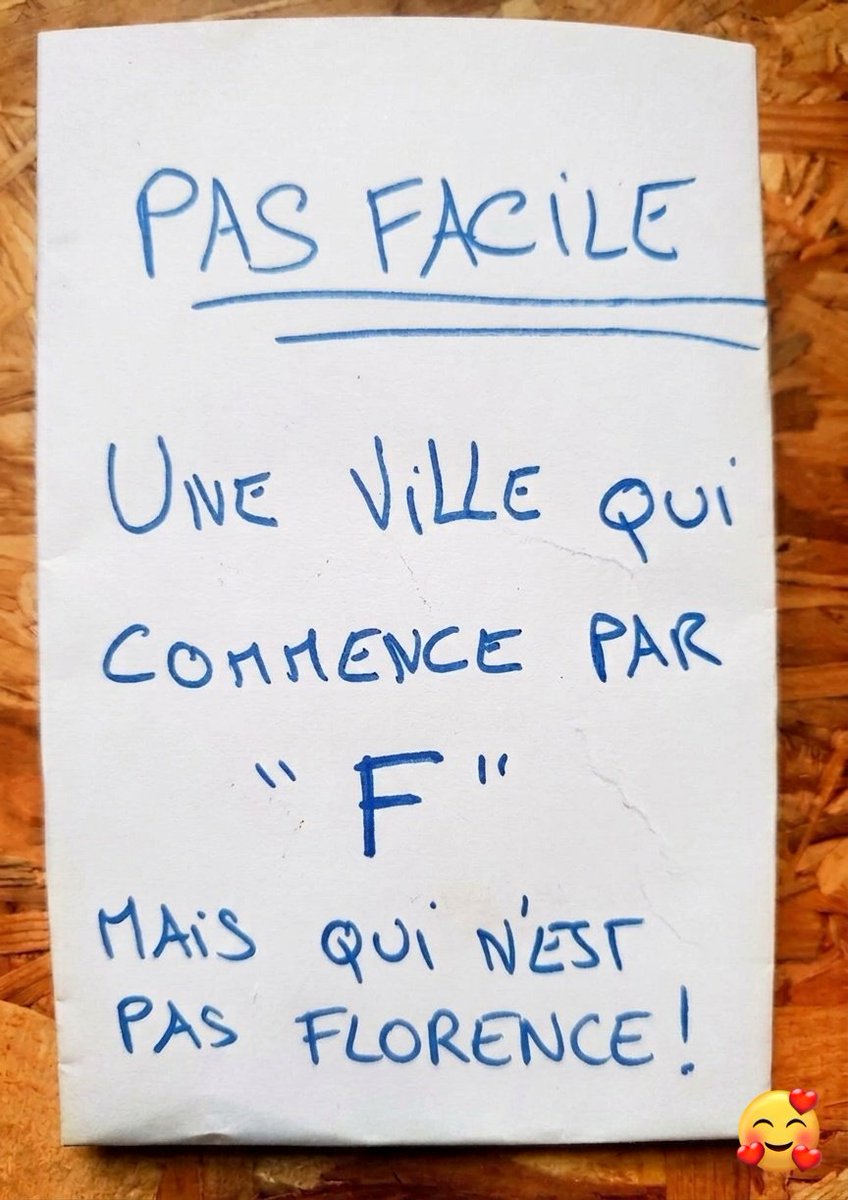 PAS FACILE
UNE VILLE QUI
COMMENCE PAR
"F"
MAIS QUI N'EST
PAS FLORENCE!